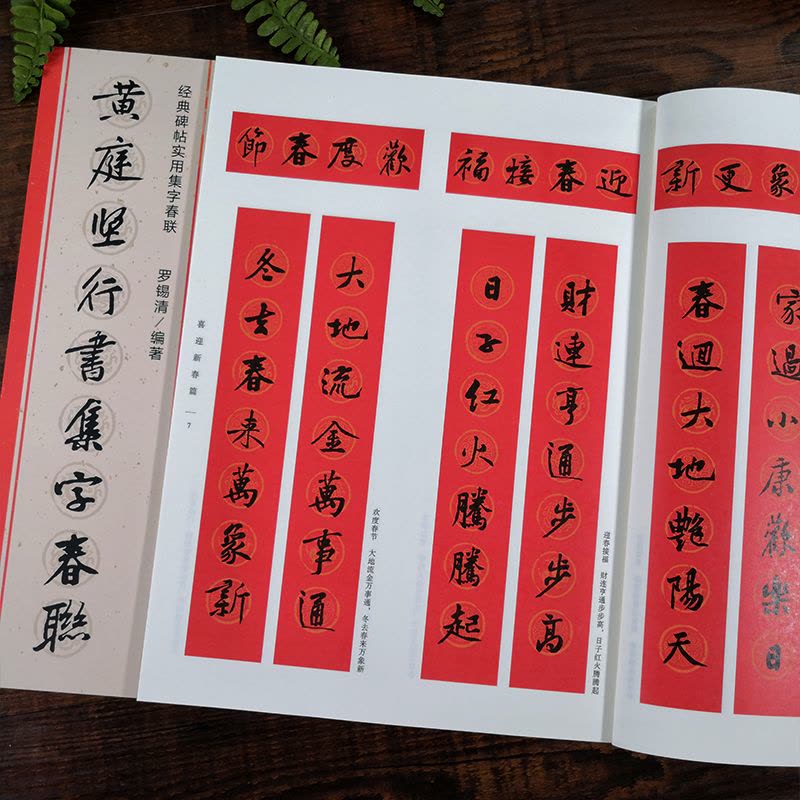 经典碑帖实用集字春联
黄庭坚行書集字春聯
罗锡清/编著
歡度春節
大地流金萬事通
冬去春来萬象新
喜迎新春篇
7
欢度春节 大地流金万事通，冬去春来万象新
迎春接福
財運亨通步步高
日子红火騰騰起
迎春接福 财运亨通步步高，日子红火腾腾起
象更新
家過小康歡樂日
春迴大地艷陽天